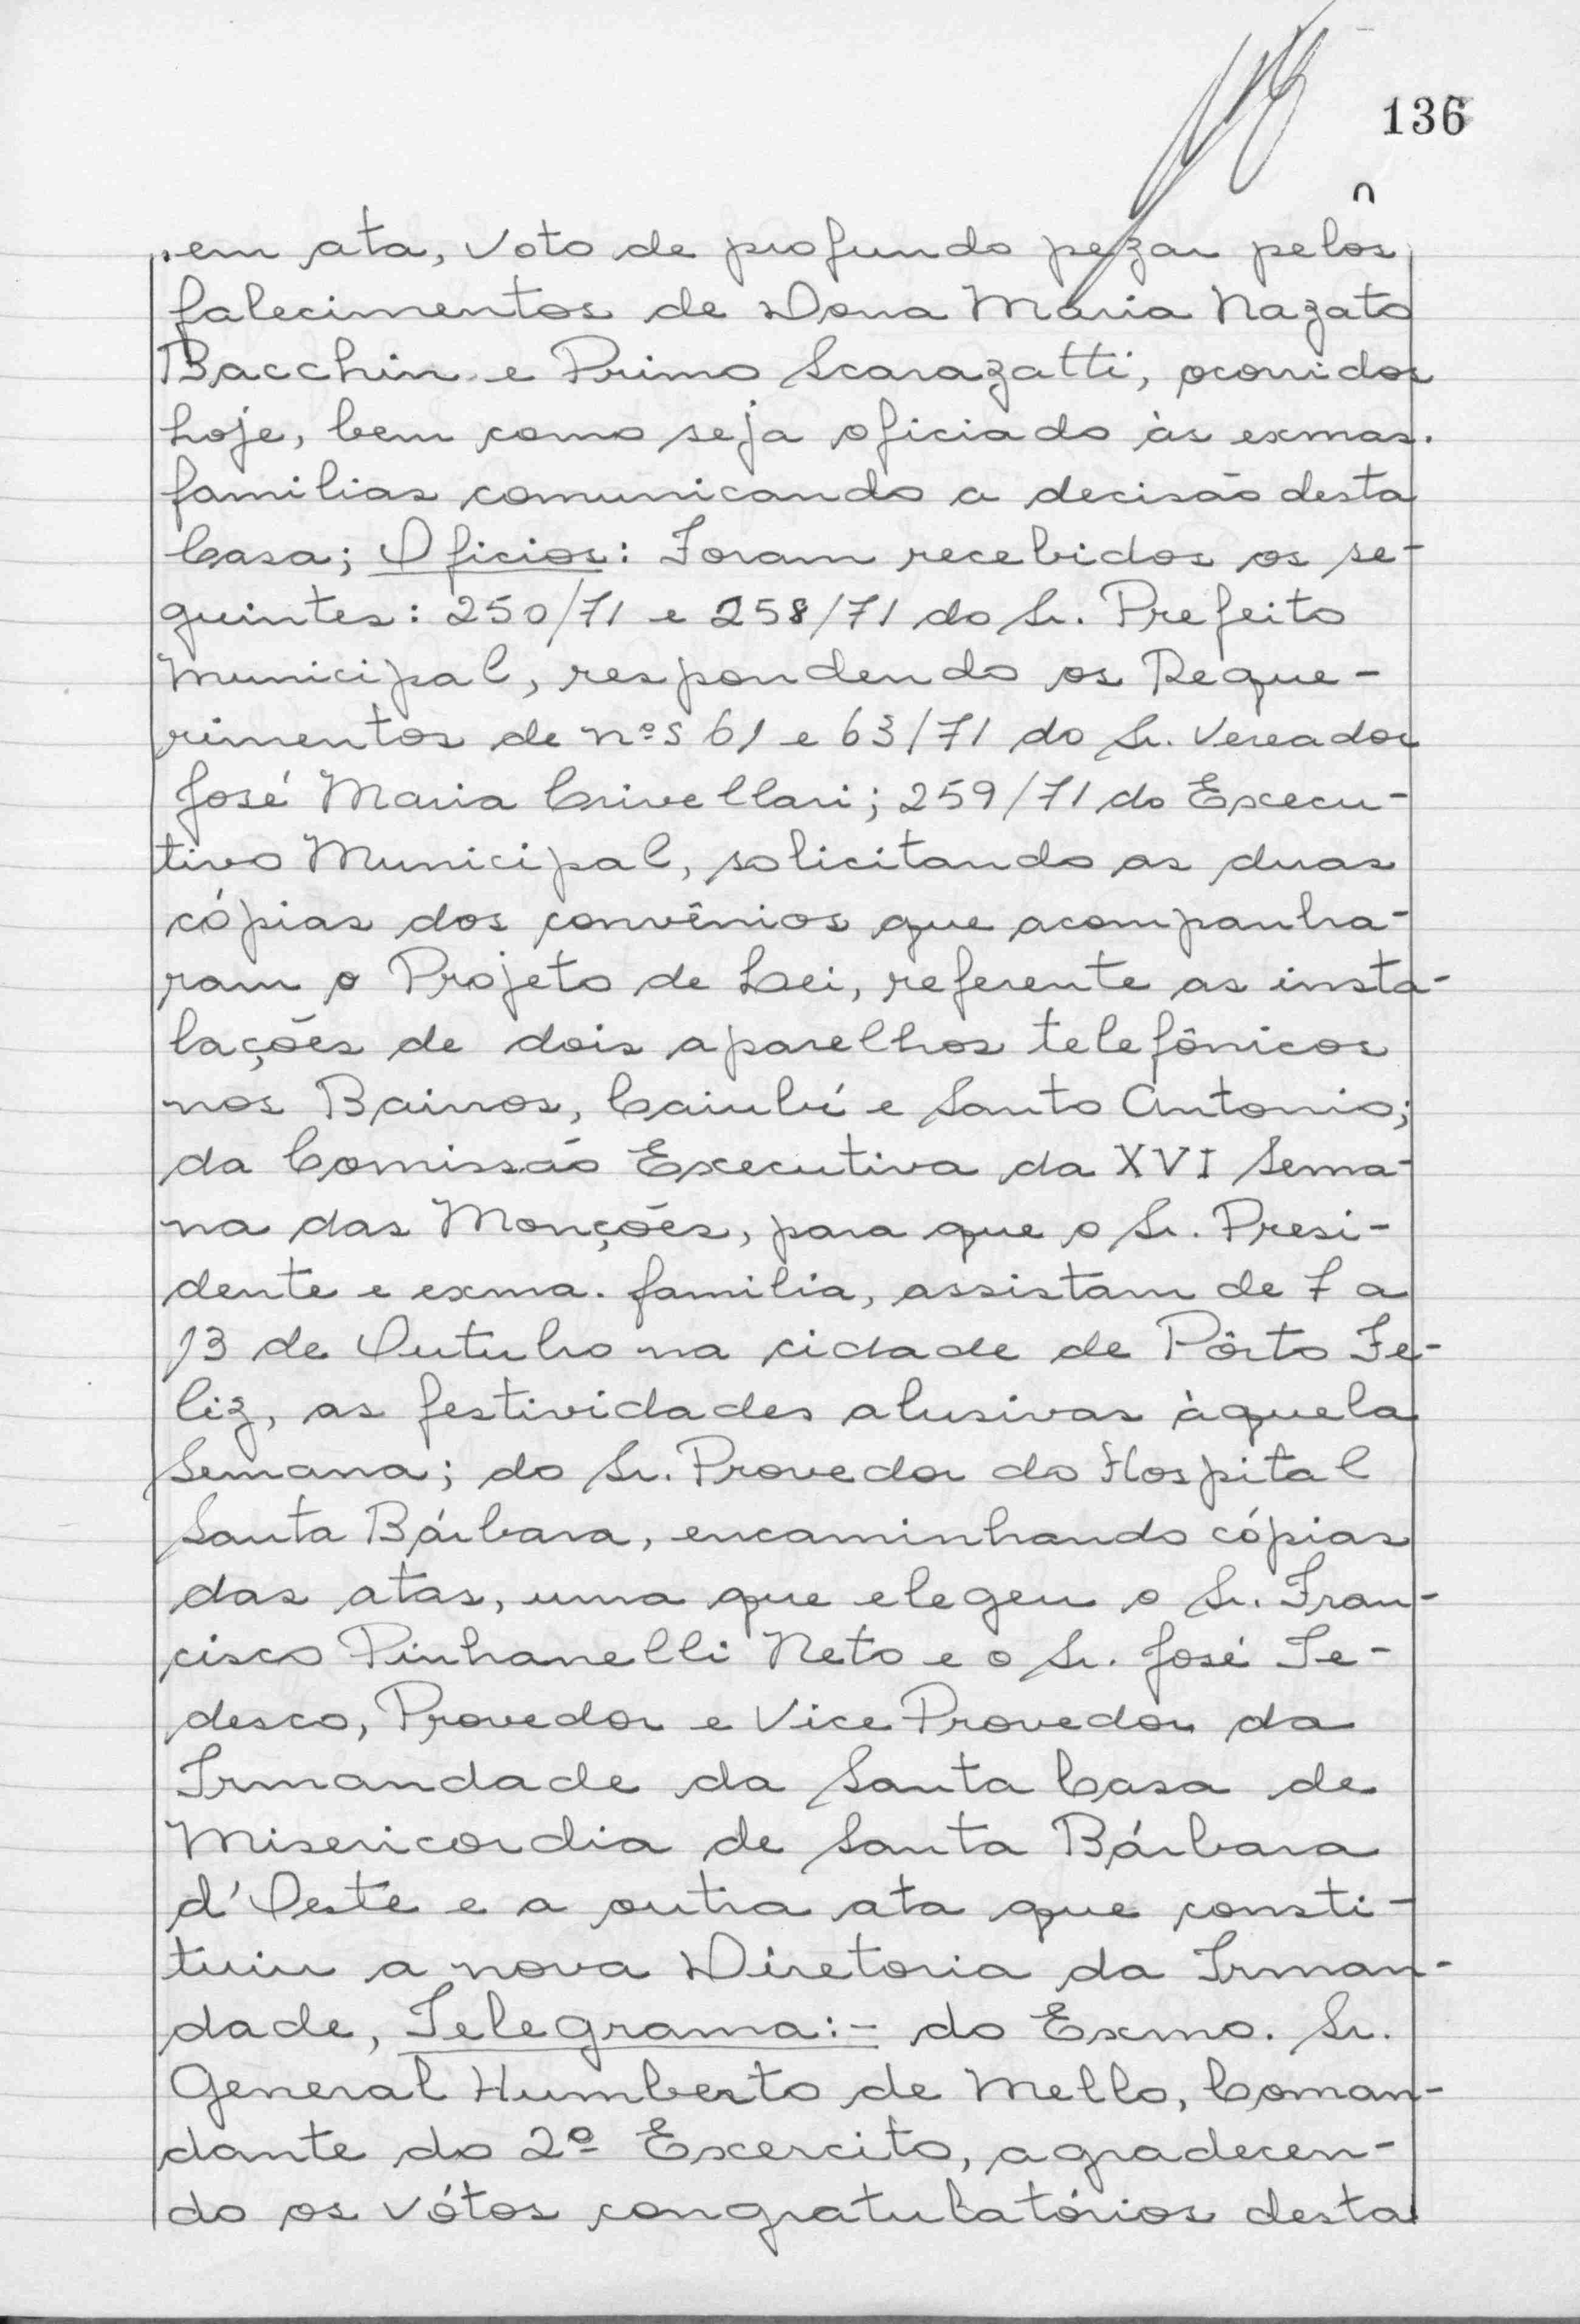 136
em ata, voto de profundo pezar pelos
falecimentos de Dona Maria Nazato
Bacchin e Primo Scarazatti, ocorridos
hoje, bem como seja oficiado às exmas.
familias comunicando a decisão desta
Casa; Oficios: Foram recebidos os se-
guintes: 250/71 e 258/71 do Sr. Prefeito
Municipal, respondendo os Reque-
rimentos de nºs 61 e 63/71 do Sr. Vereador
José Maria Crivellari; 259/71 do Execu-
tivo Municipal, solicitando as duas
cópias dos convênios que acompanha-
ram o Projeto de Lei, referente as insta-
lações de dois aparelhos telefônicos
nos Bairros, Caiubí e Santo Antonio;
da Comissão Executiva da XVI Sema-
na das Monções, para que o Sr. Presi-
dente e exma. familia, assistam de 7 a
13 de Outubro na cidade de Pôrto Fe-
liz, as festividades alusivas àquela
Semana; do Sr. Provedor do Hospital
Santa Bárbara, encaminhando cópias
das atas, uma que elegeu o Sr. Fran-
cisco Pinhanelli Neto e o Sr. José Te-
desco, Provedor e Vice Provedor da
Irmandade da Santa Casa de
Misericordia de Santa Bárbara
d'Oeste e a outra ata que consti-
tuiu a nova Diretoria da Irman-
dade, Telegrama:- do Exmo. Sr.
General Humberto de Mello, Coman-
dante do 2º Excercito, agradecen-
do os vótos congratulatórios desta